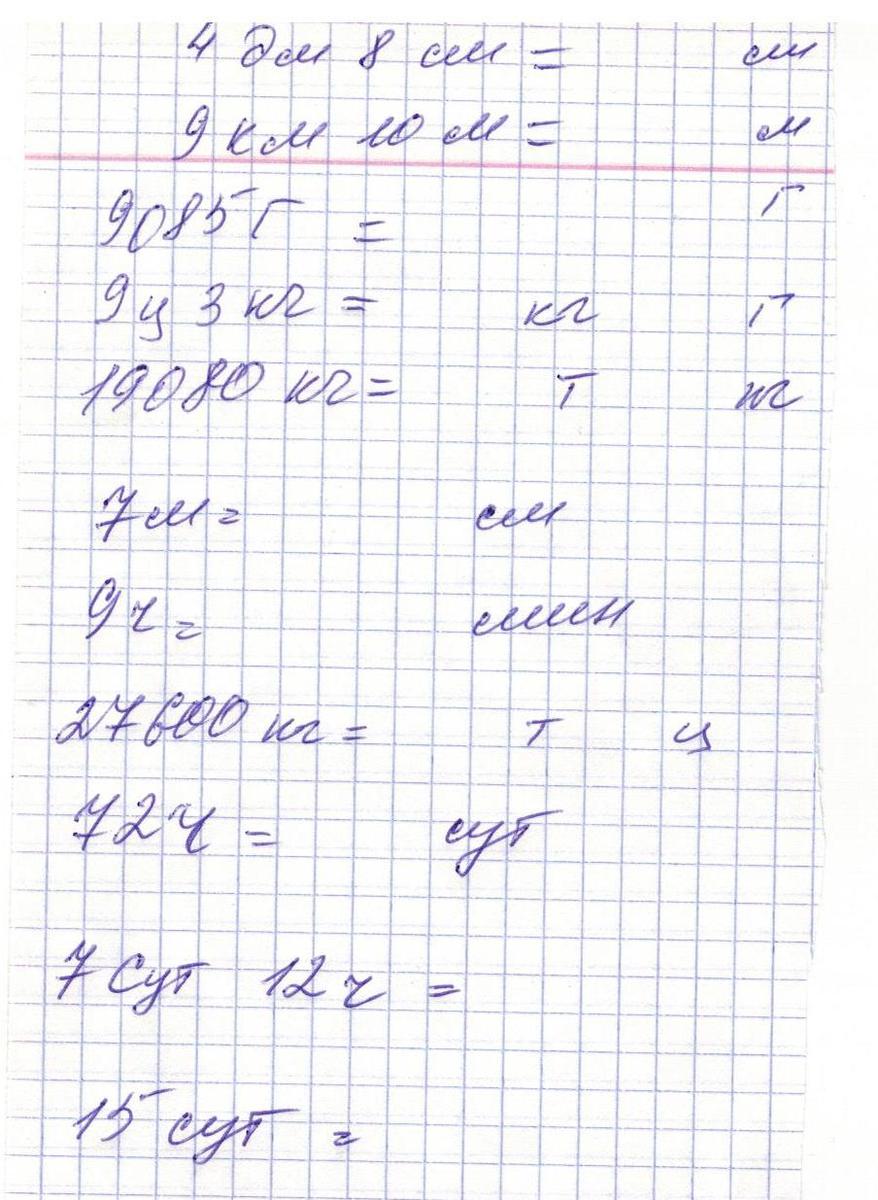 4 дм 8 см = см
9 км 10 м = м
9085 г = г
9 ц 3 кг = кг г
19080 кг = т кг
7 м = см
9 ч = мин
27600 кг = т ц
72 ч = сут
7 Сут 12 ч =
15 сут =